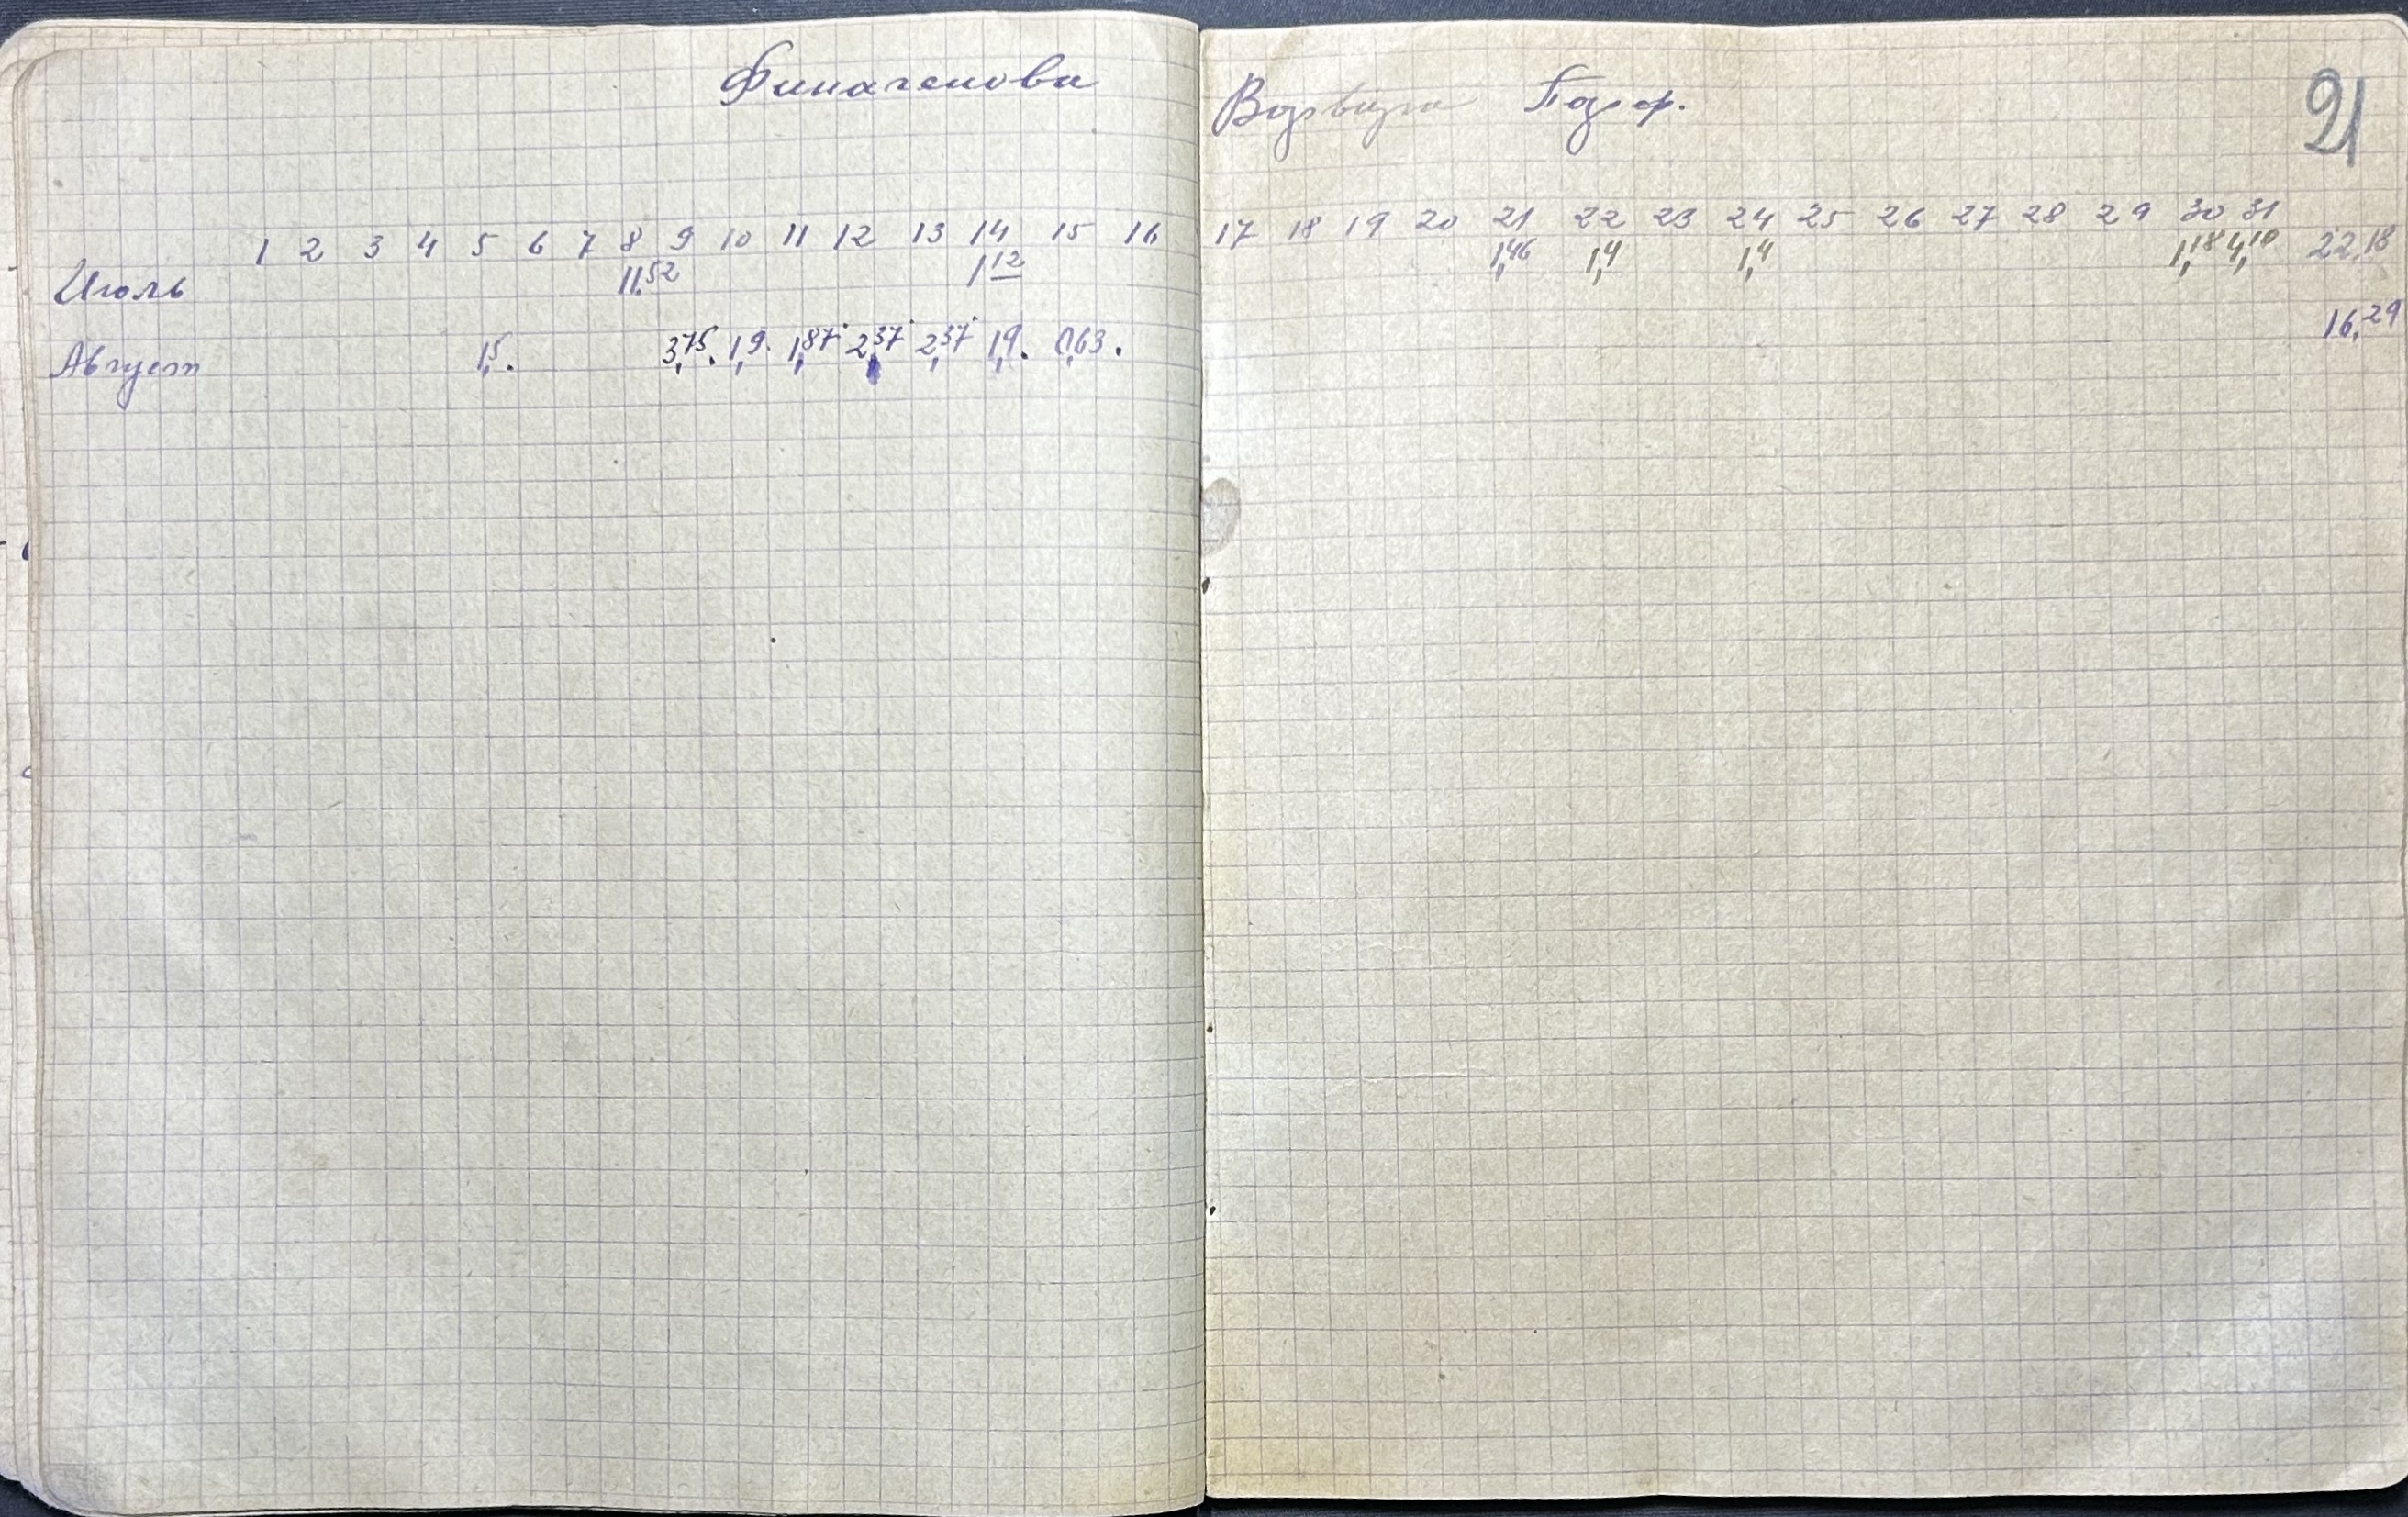 Финагенова
Воздвиги Газоф.
21
1 2 3 4 5 6 7 8 9 10 11 12 13 14 15 16 17 18 19 20 21 22 23 24 25 26 27 28 29 30 31
Июль 11,52 1,12 1,46 1,4 1,4 1,18 4,10 22,18
Август 1,5. 3,75. 1,9. 1,87. 2,37. 2,37. 1,9. 0,63. 16,29